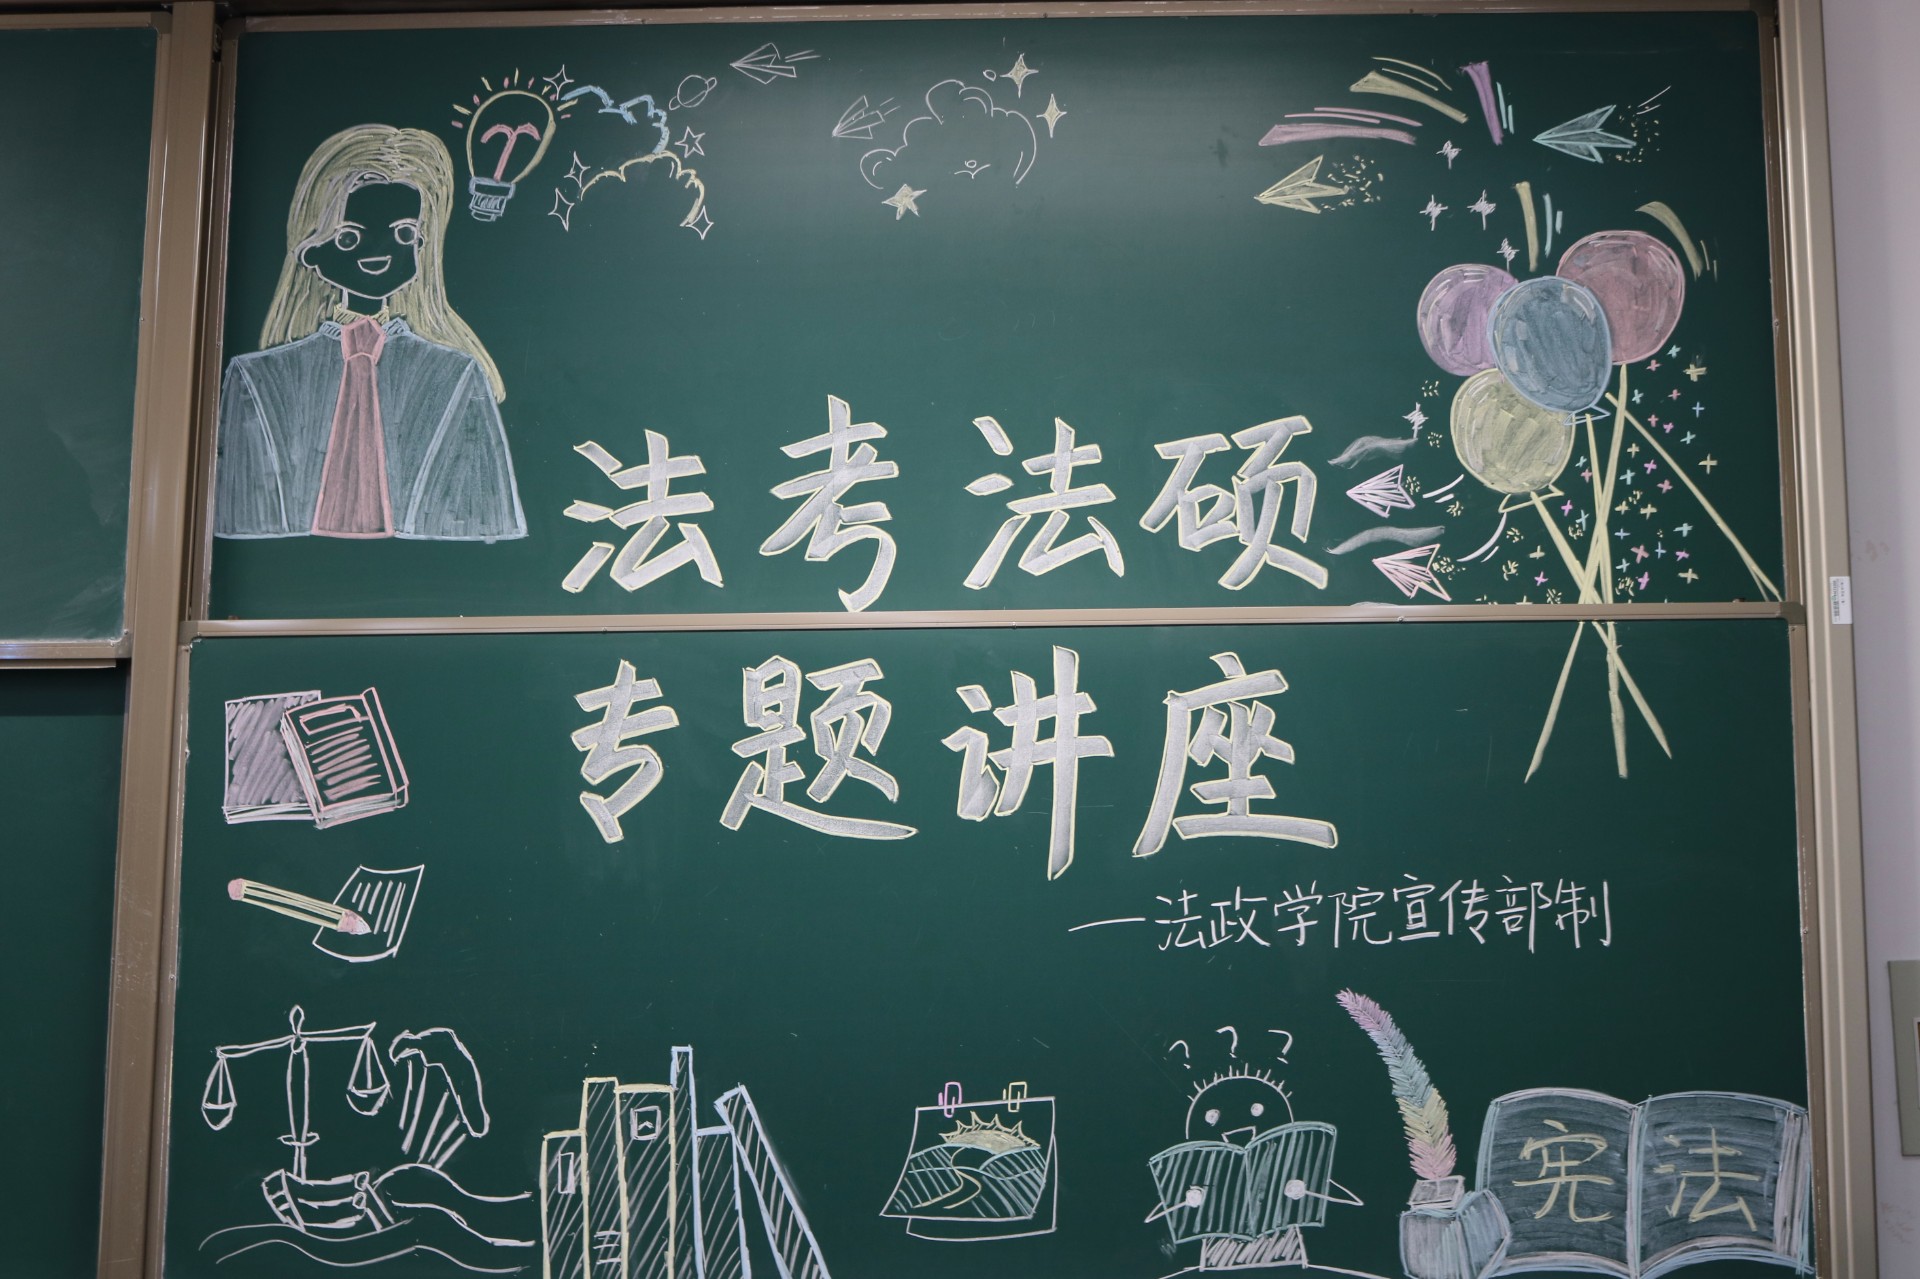 法考法硕
专题讲座
—法政学院宣传部制
? ? ?
宪法